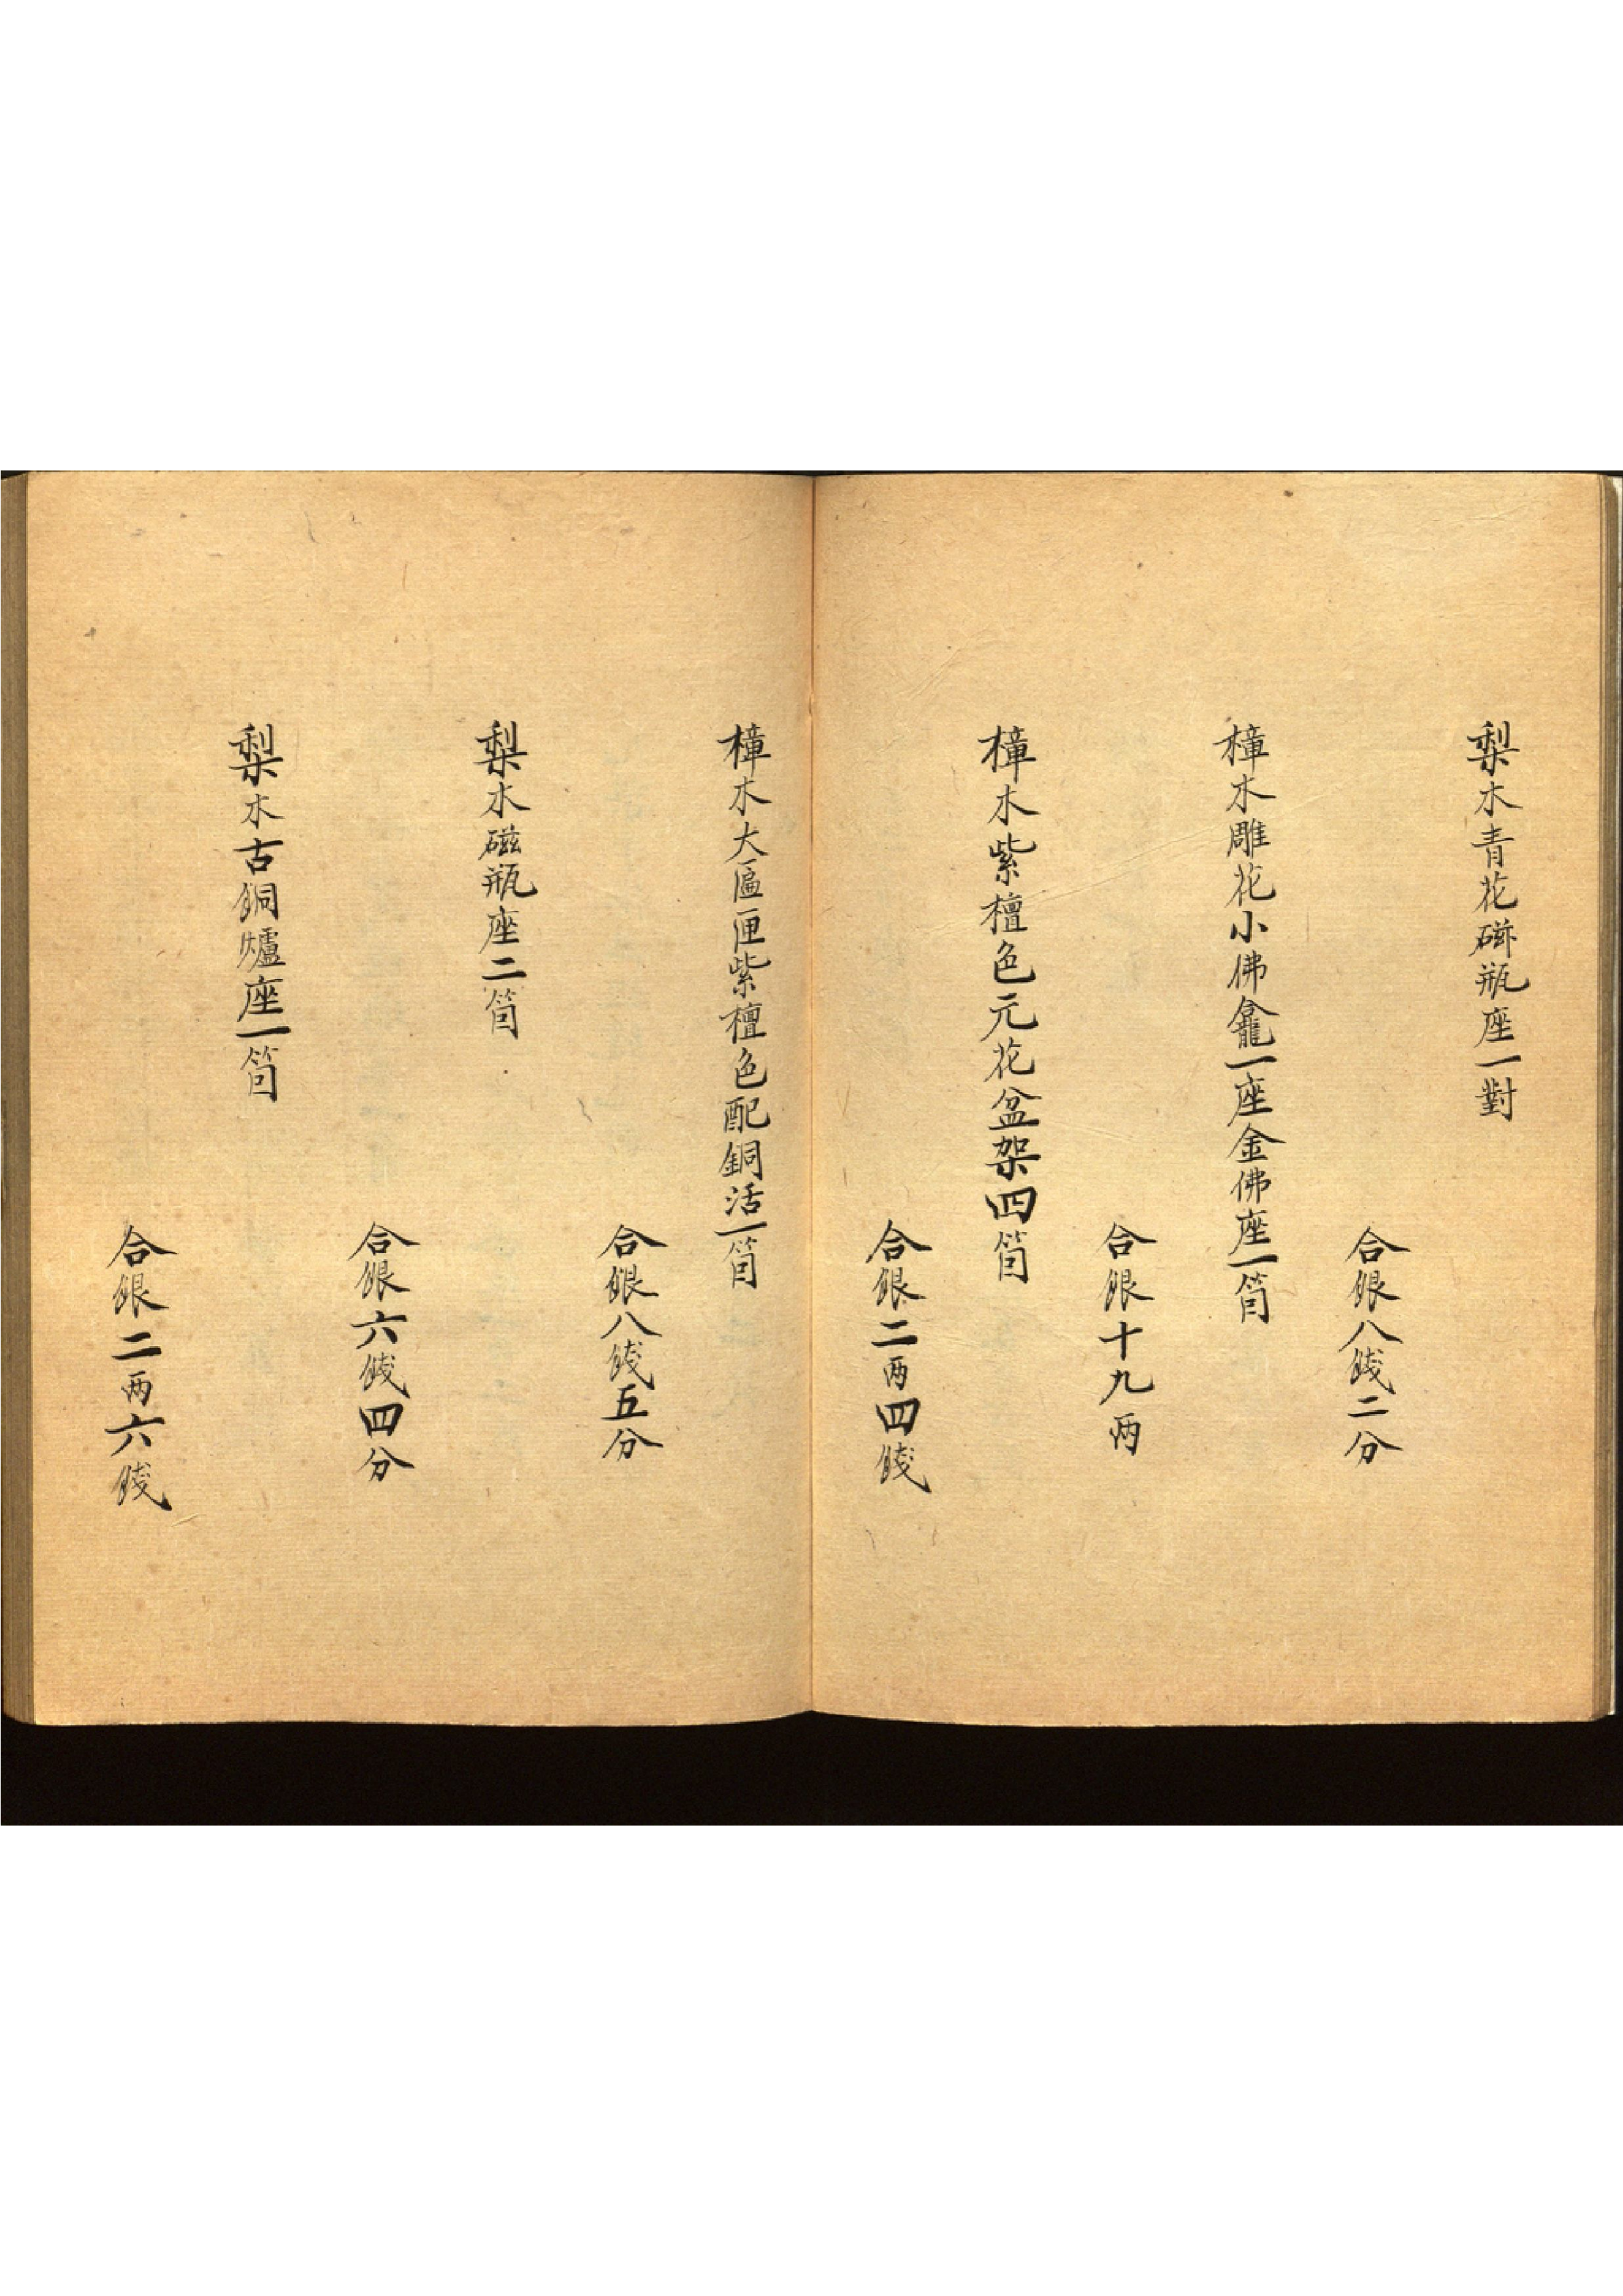 梨木青花磁瓶座一對
合銀八錢二分
樟木雕花小佛龕一座金佛座一箇
合銀十九両
樟木紫檀色元花盆架四箇
合銀二両四錢
樟木大匾匣紫檀色配銅活一箇
合銀八錢五分
梨木磁瓶座二箇
合銀六錢四分
梨木古銅爐座一箇
合銀二両六錢